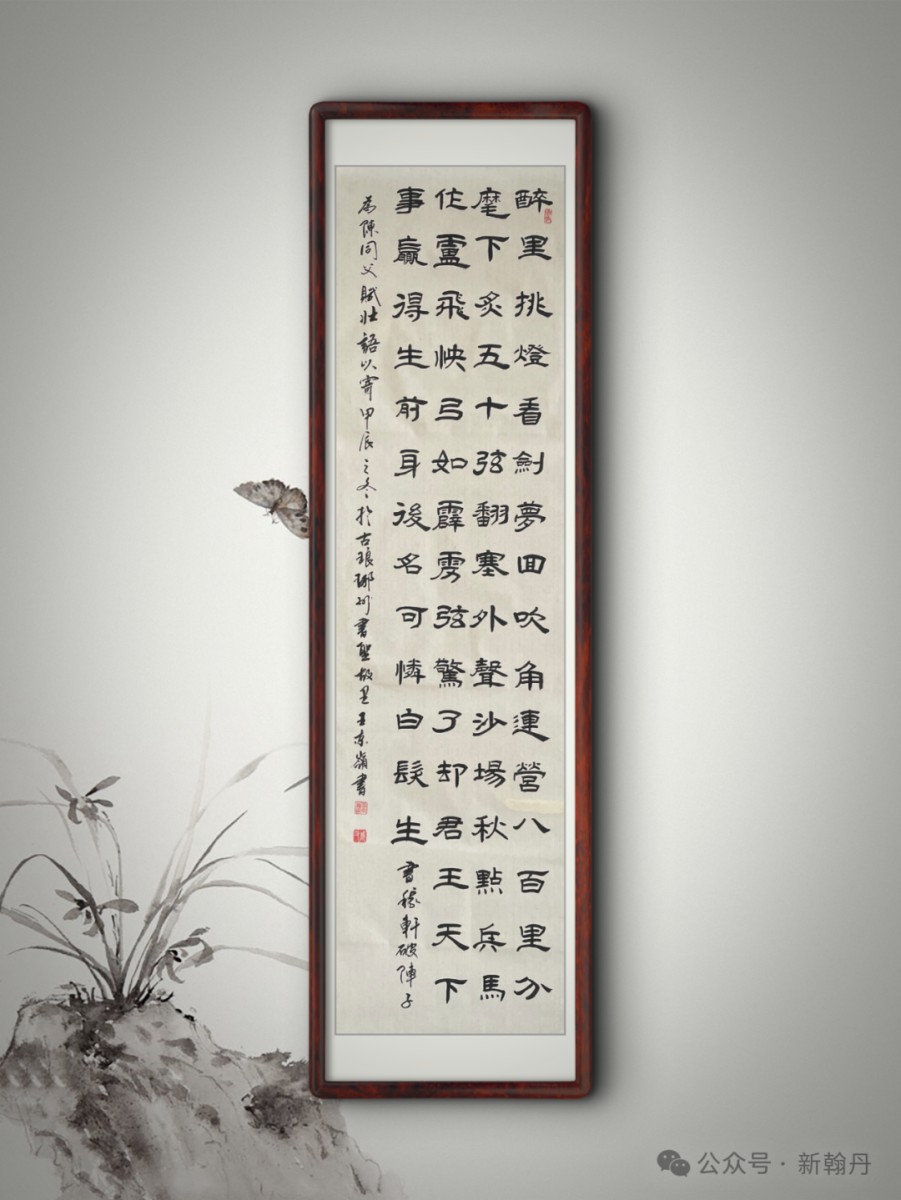 醉里挑燈看劍夢回吹角連營八百里分
麾下炙五十弦翻塞外聲沙場秋點兵馬
作盧飛快弓如霹靂弦驚了却君王天下
事贏得生前身後名可憐白髮生 書稼軒破陣子
為陳同父賦壯語以寄甲辰之冬於古琅琊州書聖故里王東嶺書
公众号·新翰丹